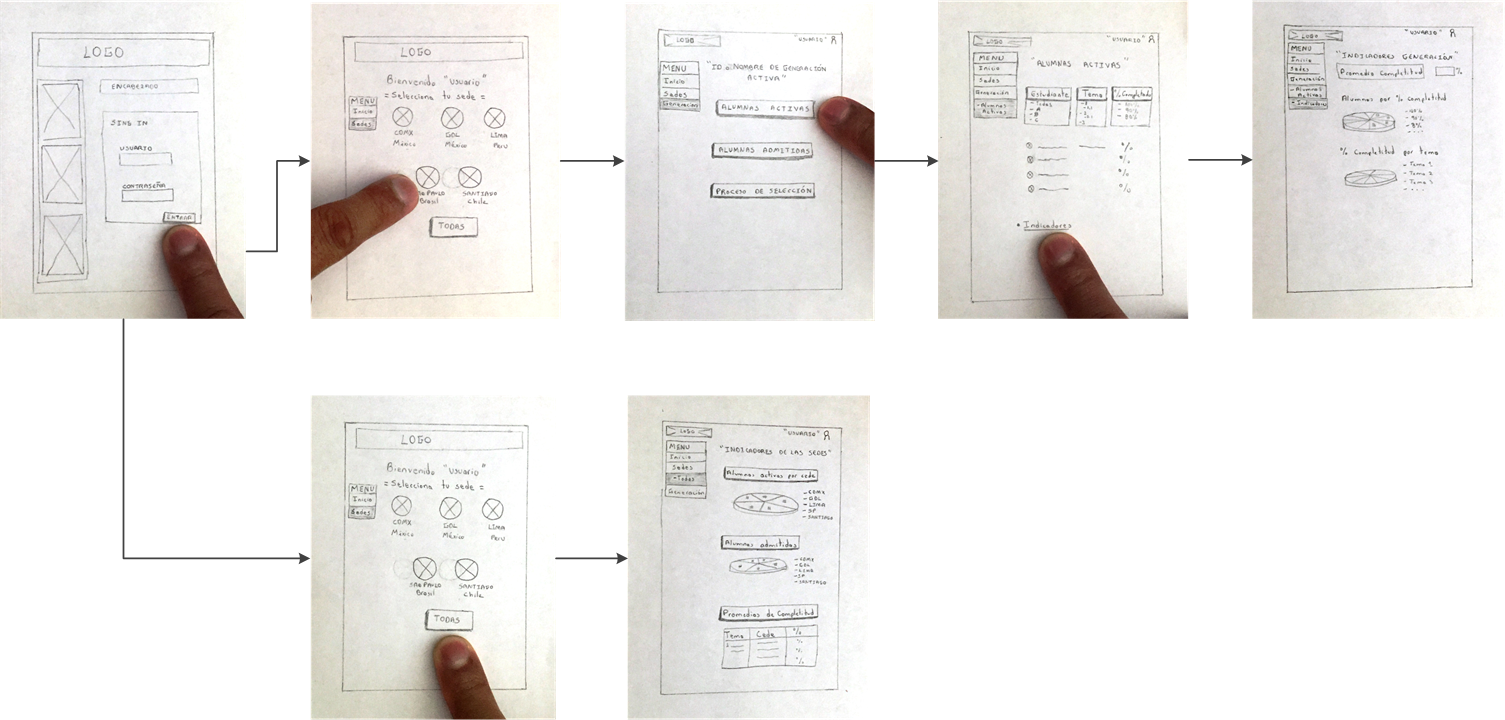 LOGO
ENCABEZADO
SING IN
USUARIO
CONTRASEÑA
ENTRAR
LOGO
Bienvenido "Usuario"
= Selecciona tu sede =
MENU
Inicio
Sedes
CDMX
México
GDL
México
LIMA
Peru
O PAULO
Brasil
SANTIAGO
Chile
TODAS
LOGO
"USUARIO"
MENU
Inicio
Sedes
Generación
"ID o NOMBRE DE GENERACIÓN
ACTIVA"
ALUMNAS ACTIVAS
ALUMNAS ADMITIDAS
PROCESO DE SELECCIÓN
LOGO
"USUARIO"
MENU
Inicio
Sedes
Generación
- Alumnas
Activas
"ALUMNAS ACTIVAS"
Estudiante
- Todas
- A
- B
- C
Tema
% Completado
- 100%
- 90%
- 80%
%
%
%
%
• Indicadores
LOGO
"USUARIO"
MENU
Inicio
Sedes
Generación
- Alumnas
Activas
- Indicadores
"INDICADORES GENERACIÓN"
Promedio Completitud
%
Alumnas por % Completitud
- 100%
- 90%
- 8%
- ...
% Completitud por tema
- Tema 1
- Tema 2
- Tema 3
- ...
LOGO
Bienvenido "Usuario"
= Selecciona tu sede =
MENU
Inicio
Sedes
CDMX
México
GDL
México
LIMA
Peru
SAO PAULO
Brasil
SANTIAGO
Chile
TODAS
LOGO
"USUARIO"
MENU
Inicio
Sedes
- Todas
Generación
"INDICADORES DE LAS SEDES"
Alumnas activas por sede
- CDMX
- GDL
- LIMA
- SP
- SANTIAGO
Alumnas admitidas
- CDMX
- GDL
- LIMA
- SP
- SANTIAGO
Promedios de Completitud
Tema
Cede
%
%
%
%